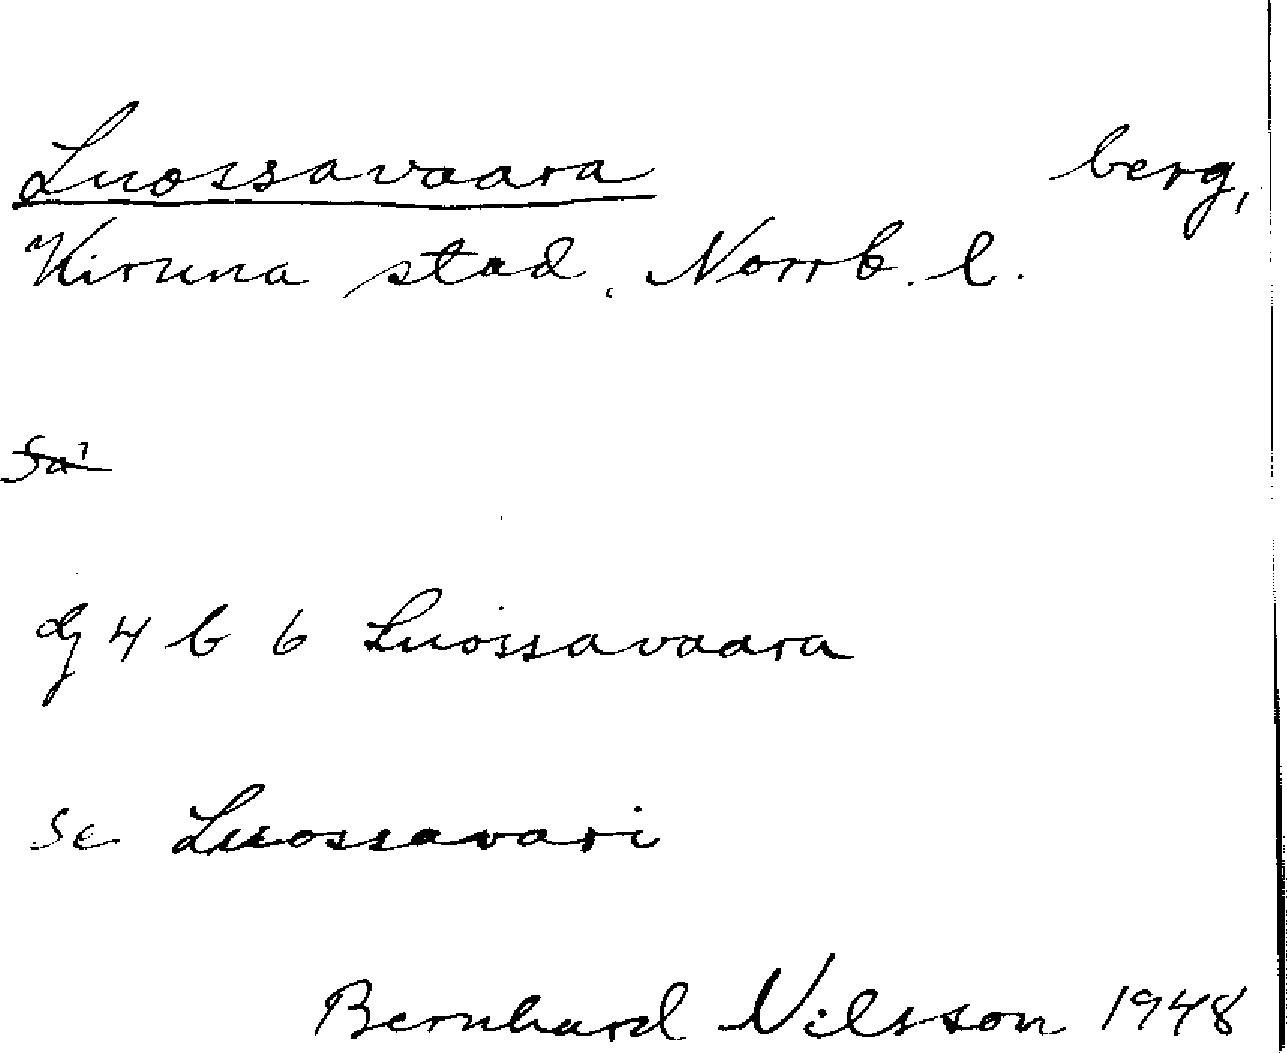 Luossavaara berg,
Kiruna stad, Norrb. l.
dj 4 b 6 Luossavaara
se Luossavari
Bernhard Nilsson 1948